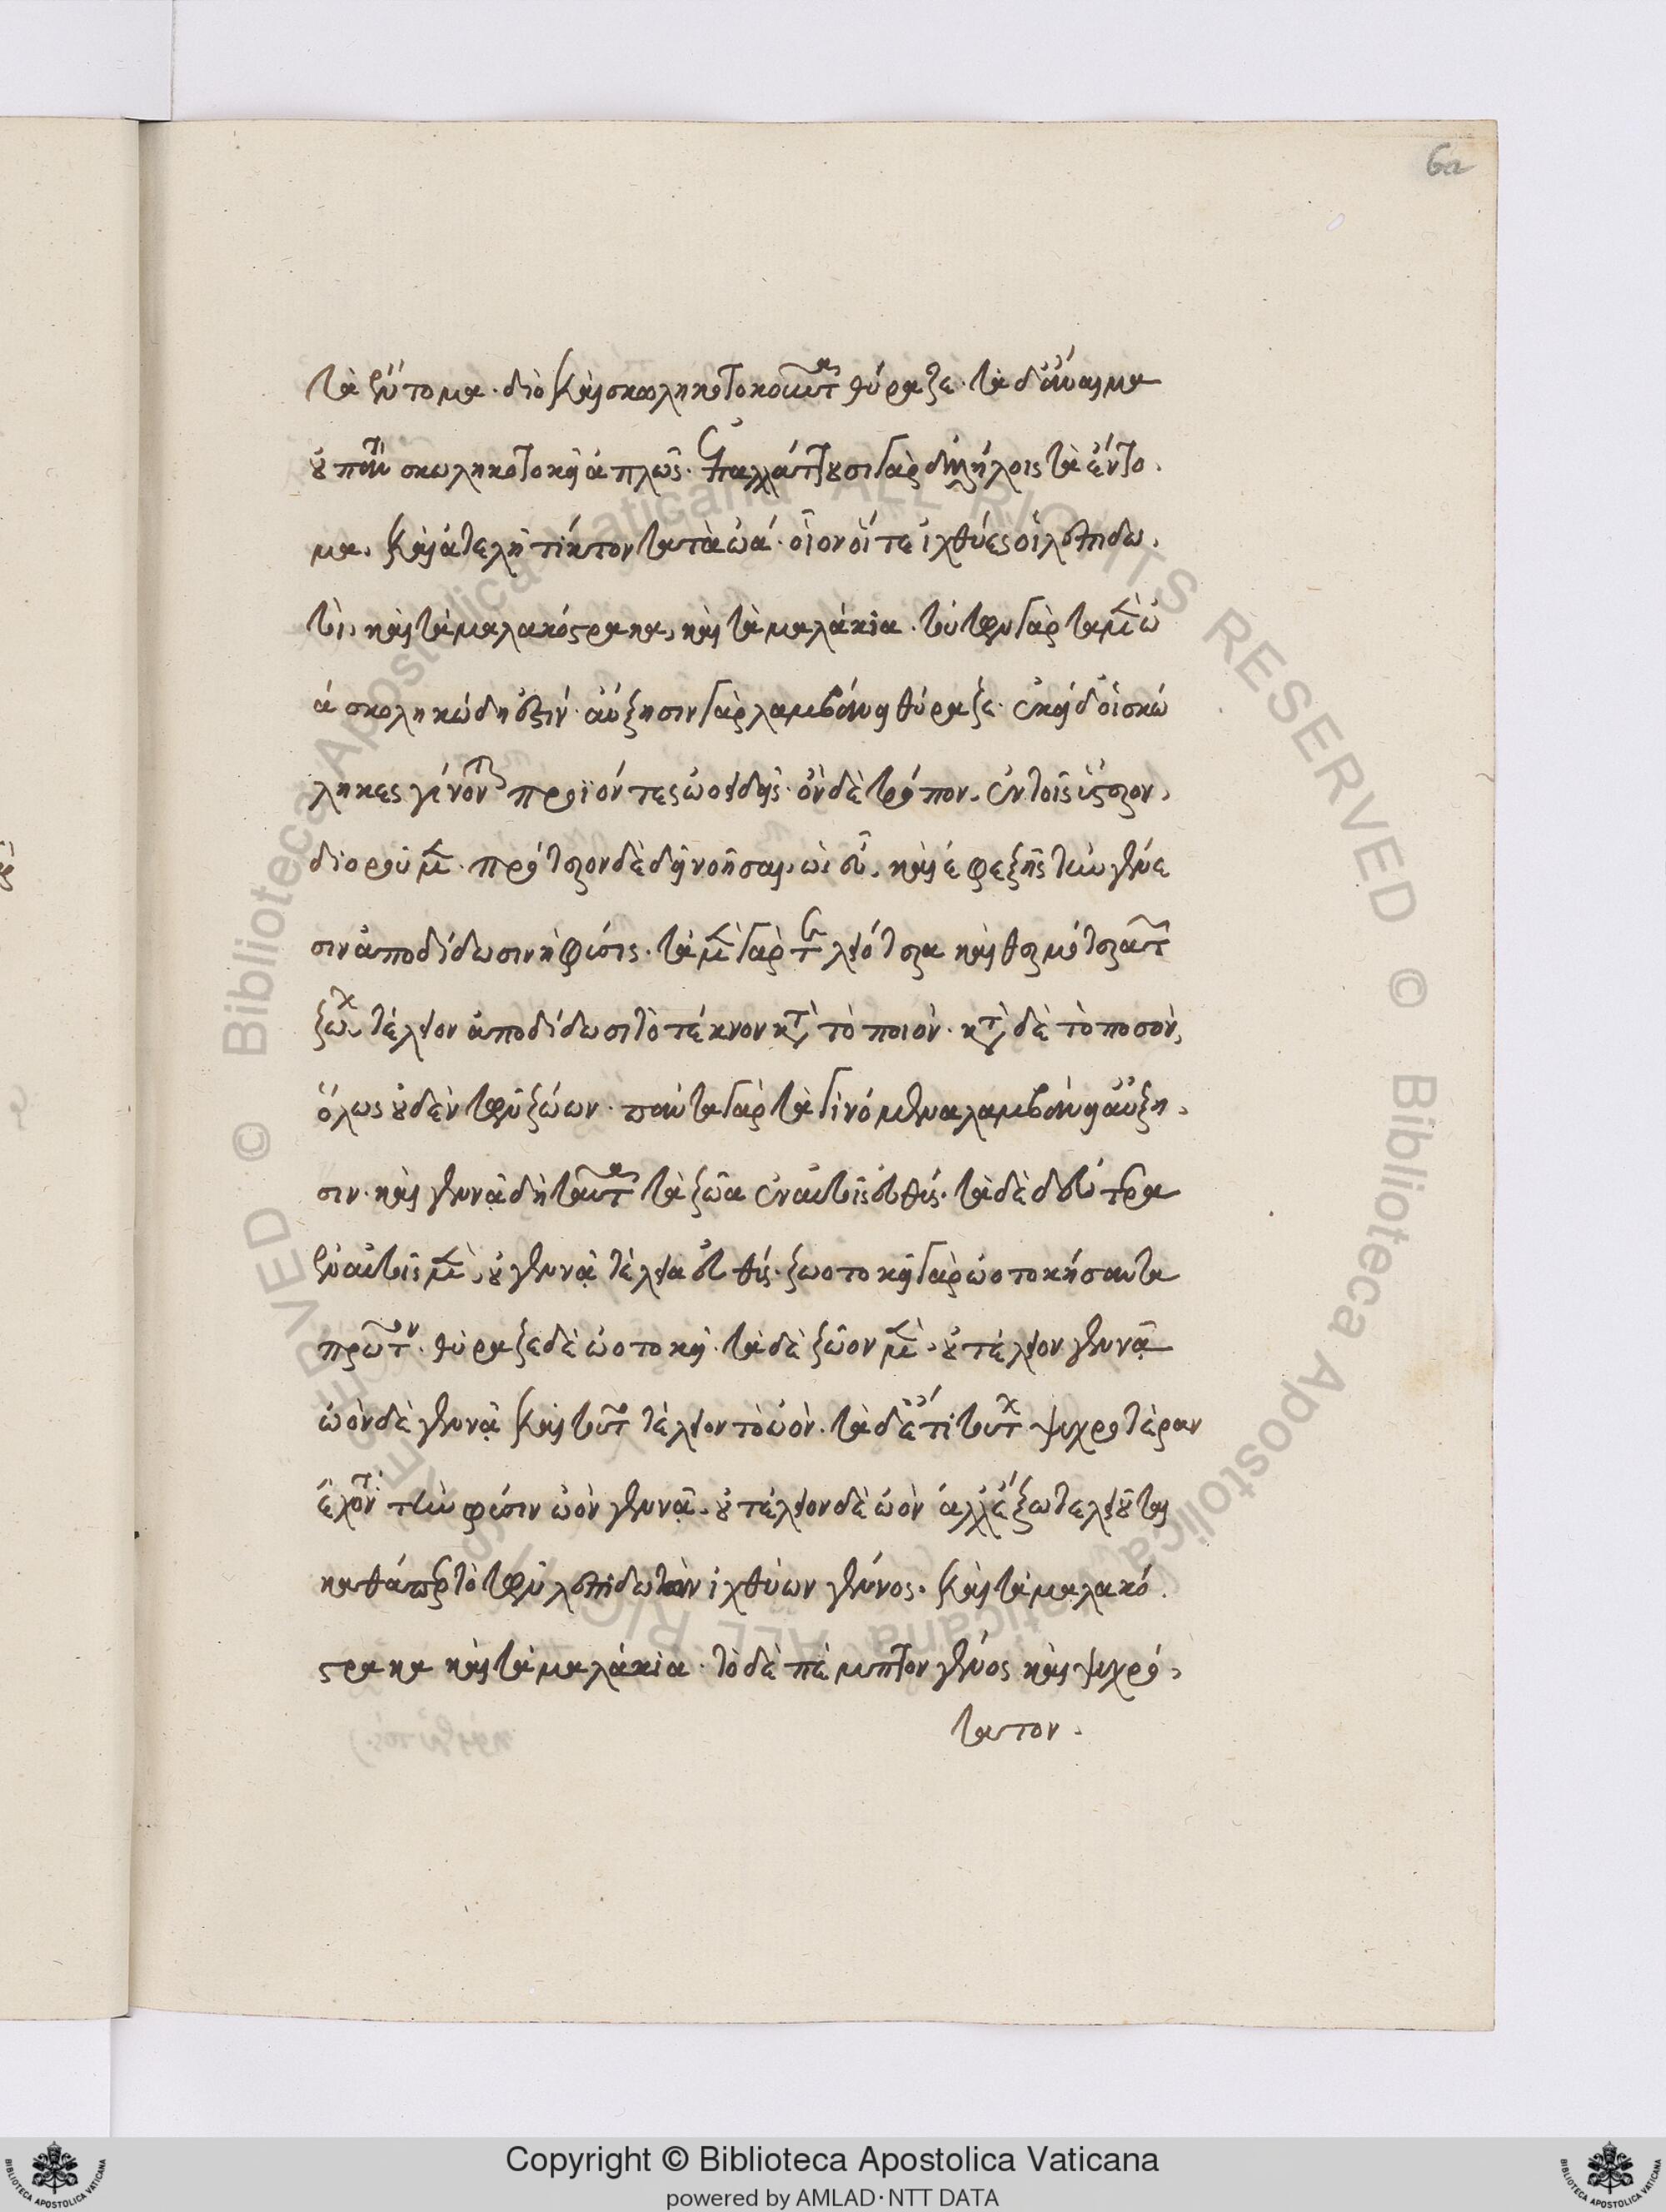 60
τὰ ἔντομα· διὸ καὶ σκωληκοτοκοῦντα θύραζε· τὰ δ' ἄναιμα
οὐ πάντα σκωληκοτοκεῖ ἁπλῶς· ἐπαλλάττουσι γὰρ ἀλλήλοις τὰ ἔντο
μα, καὶ ἀτελῆ τίκτοντα τὰ ὠά· οἷον οἵ τε ἰχθύες οἱ λεπιδω
τοὶ, καὶ τὰ μαλακόστρακα, καὶ τὰ μαλάκια· τούτων γὰρ τὰ μὲν ὠ
ά σκωληκώδη ἐστίν· αὔξησιν γὰρ λαμβάνει θύραζε· ἐκεῖ δ' οἱ σκώ
ληκες γίνονται προϊόντες ὠοειδεῖς· ὃν δὲ τρόπον, ἐν τοῖς ὕστερον
διοροῦμεν· πρότερον δὲ δεῖ νοῆσαι, ὡς εὖ, καὶ ἐφεξῆς τὴν γένε
σιν ἀποδίδωσιν ἡ φύσις· τὰ μὲν γὰρ τελεότερα καὶ θερμότερα τῶν
ζώων, τέλειον ἀποδίδωσι τὸ τέκνον κατὰ τὸ ποιόν· κατὰ δὲ τὸ ποσὸν,
ὅλως οὐδὲν τῶν ζώων· πάντα γὰρ τὰ γινόμενα λαμβάνει αὔξη
σιν· καὶ γεννᾷ δὴ ταῦτα τὰ ζῶα ἐν αὑτοῖς εὐθύς· τὰ δὲ δεύτερα
ἐν αὑτοῖς μὲν, οὐ γεννᾷ τέλεια εὐθύς· ζωοτοκεῖ γὰρ ὠοτοκήσαντα
πρῶτον· θύραζε δὲ ὠοτοκεῖ· τὰ δὲ ζῶον μὲν, οὐ τέλειον γεννᾷ
ὠὸν δὲ γεννᾷ καὶ τοῦτο τέλειον τὸ ὠόν· τὰ δ' ἔτι τούτων ψυχροτέραν
ἔχοντα τὴν φύσιν ὠὸν γεννᾷ· οὐ τέλειον δὲ ὠὸν ἀλλ' ἔξω τελειοῦται
καθάπερ τὸ τῶν λεπιδωτῶν ἰχθύων γένος· καὶ τὰ μαλακό
στρακα καὶ τὰ μαλάκια· τὸ δὲ πέμπτον γένος καὶ ψυχρό
τατον·
Copyright © Biblioteca Apostolica Vaticana
powered by AMLAD·NTT DATA